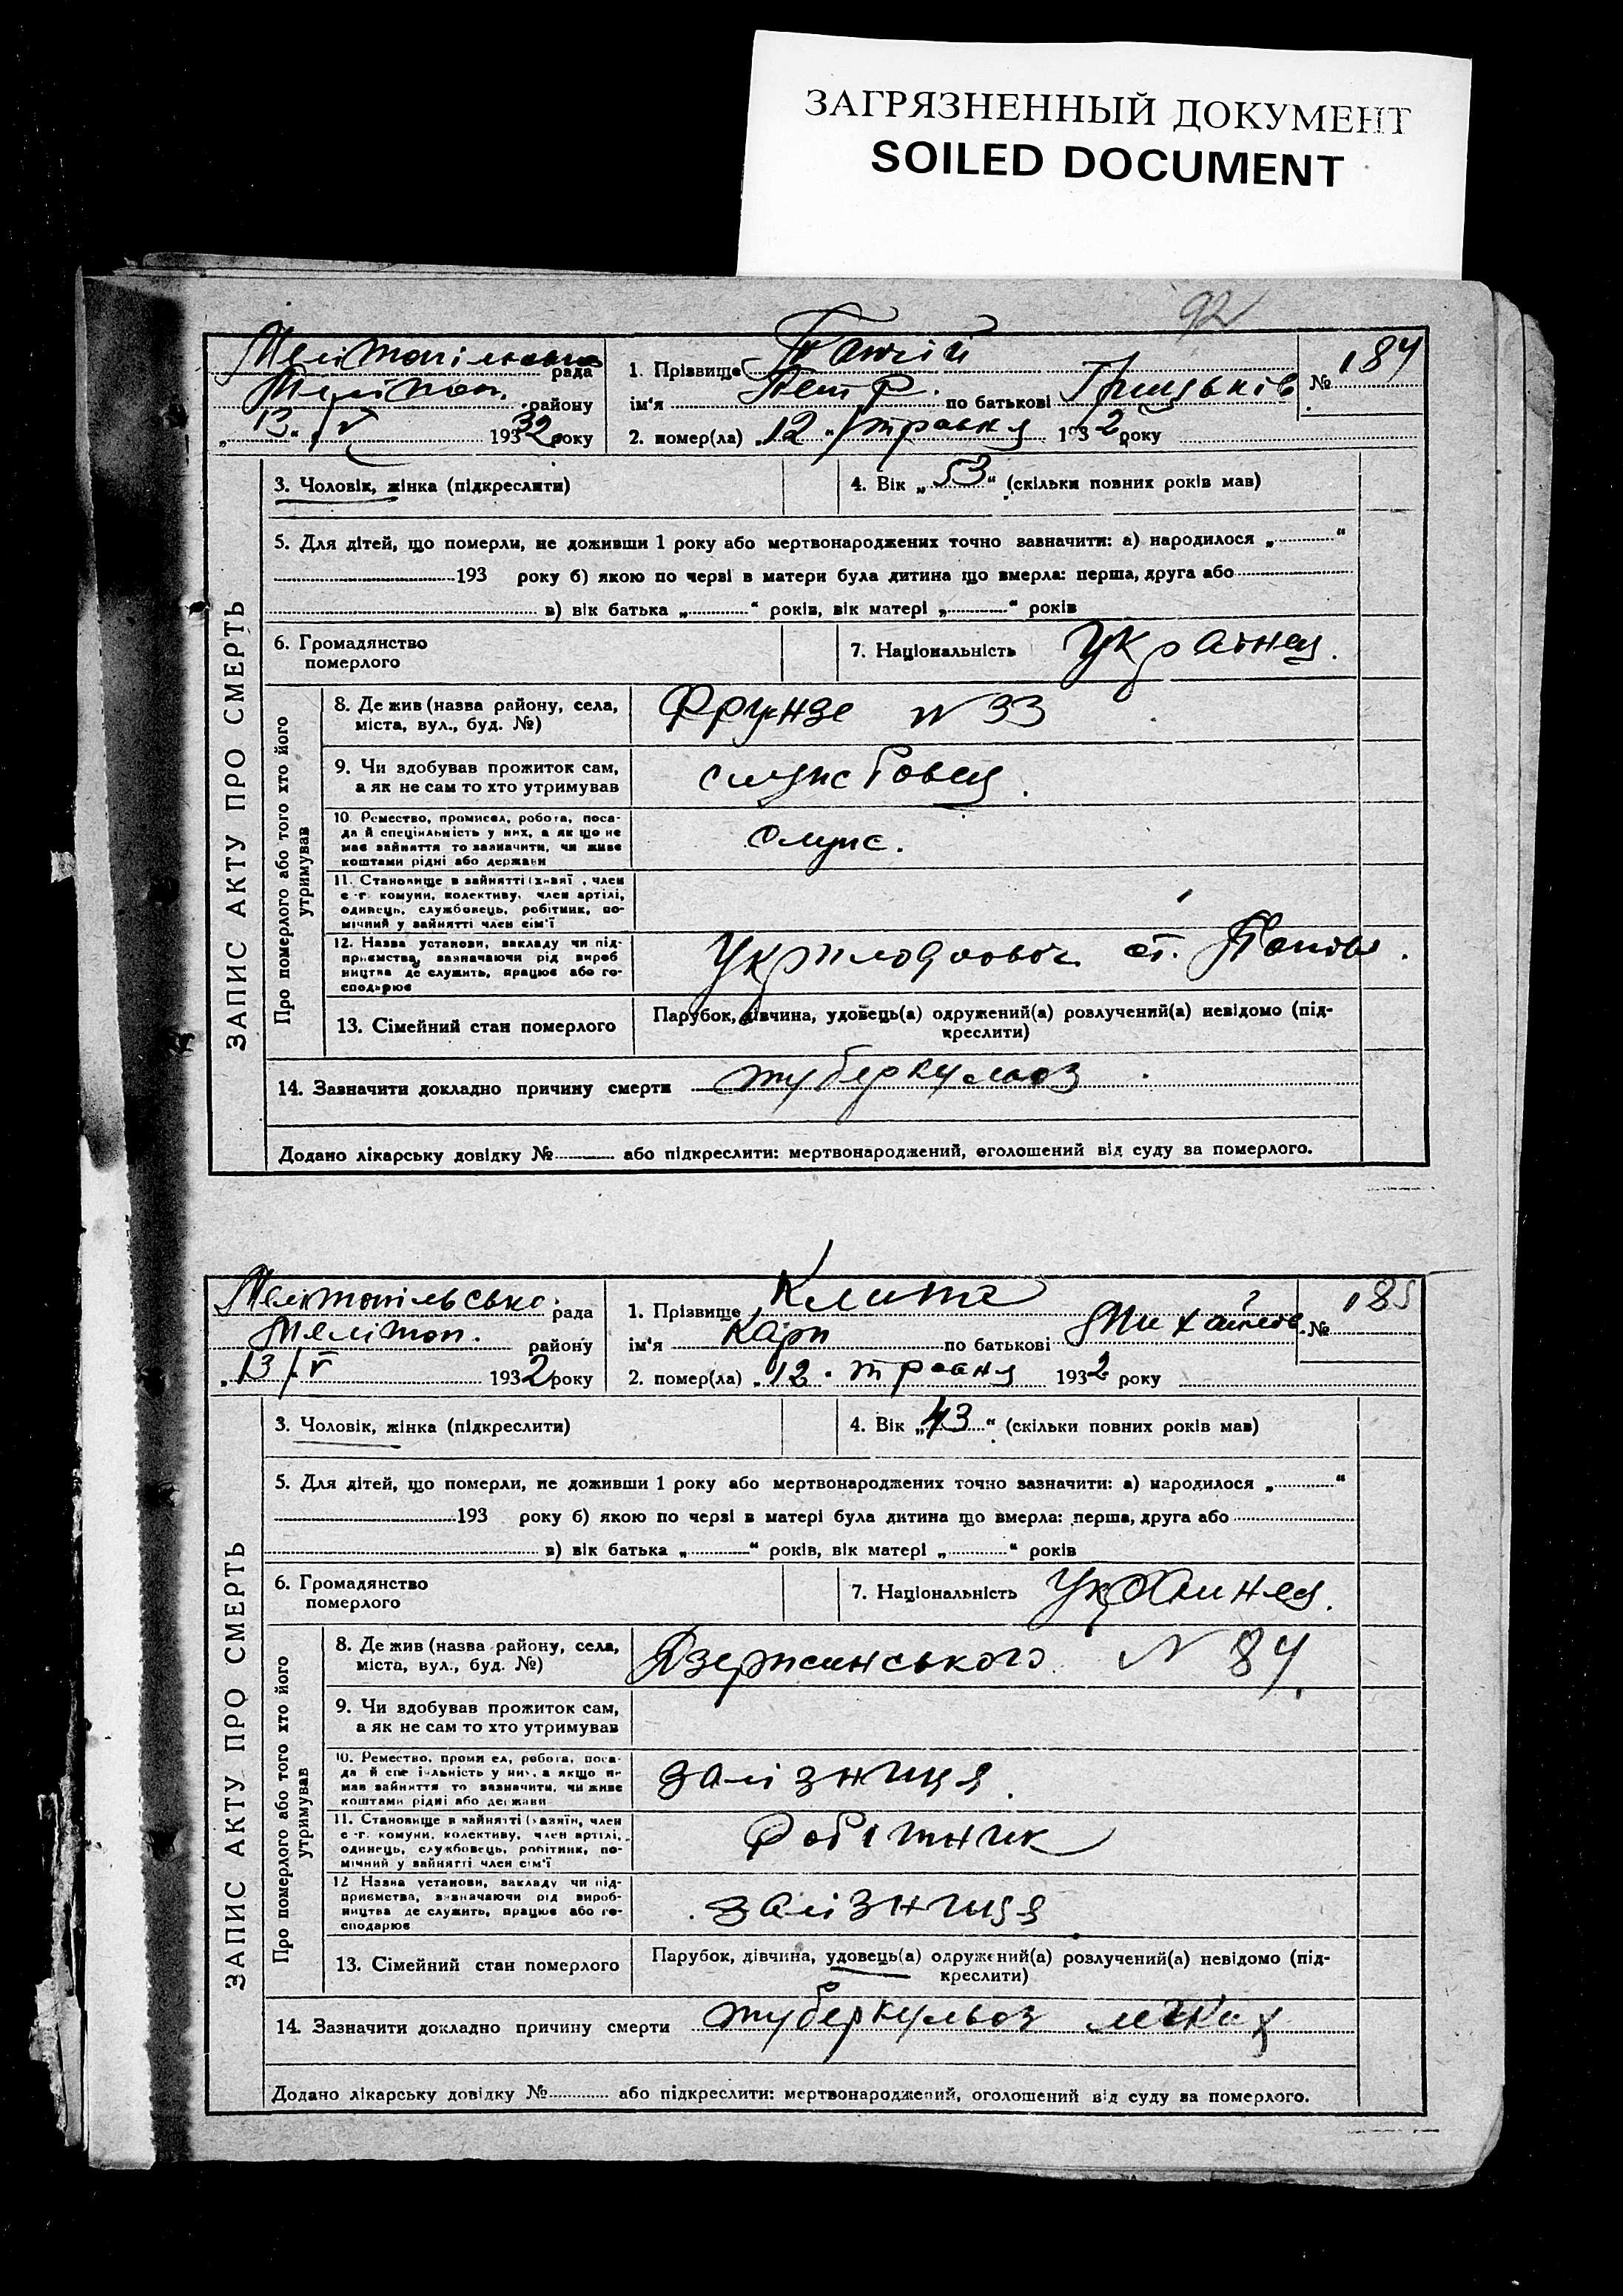 ЗАГРЯЗНЕННЫЙ ДОКУМЕНТ
SOILED DOCUMENT
92
рада
Мелітоп. району
„13“ V 1932 року
1. Прізвище
ім'я Петр. по батькові Грицьків
№ 184
2. помер(ла) „12“ травня 1932 року
ЗАПИС АКТУ ПРО СМЕРТЬ
3. Чоловік, жінка (підкреслити)
4. Вік „53“ (скільки повних років мав)
5. Для дітей, що померли, не доживши 1 року або мертвонароджених точно зазначити: а) народилося „ “
193 року б) якою по черзі в матери була дитина що вмерла: перша, друга або
в) вік батька „ “ років, вік матері „ “ років
6. Громадянство
померлого
7. Національність Українец.
Про померлого або того хто його
утримував
8. Де жив (назва району, села,
міста, вул., буд. №)
Фрунзе N 33
9. Чи здобував прожиток сам,
а як не сам то хто утримував
10. Ремество, промисел, робота, поса-
да й спеціяльність у них, а як що не
має зайняття то зазначити, чи живе
коштами рідні або держави
11. Становище в зайнятті , член
с.-г. комуни, колективу, член артілі,
одинець, службовець, робітник, по-
мічний у зайнятті член сім'ї
12. Назва установи, закладу чи під-
приємства, зазначаючи рід вироб
ництва де служить, працює або го-
сподарює
ст.
13. Сімейний стан померлого
Парубок, дівчина, удовець(а) одружений(а) розлучений(а) невідомо (під-
креслити)
14. Зазначити докладно причину смерти туберкульоз
Додано лікарську довідку № або підкреслити: мертвонароджений, оголошений від суду за померлого.
Мелітопільська рада
Мелітоп. району
„13/V 1932 року
1. Прізвище
ім'я Карп по батькові
№ 185
2. помер(ла) „12“ травня 1932 року
ЗАПИС АКТУ ПРО СМЕРТЬ
3. Чоловік, жінка (підкреслити)
4. Вік „43“ (скільки повних років мав)
5. Для дітей, що померли, не доживши 1 року або мертвонароджених точно зазначити: а) народилося „ “
193 року б) якою по черзі в матері була дитина що вмерла: перша, друга або
в) вік батька „ “ років, вік матері „ “ років
6. Громадянство
померлого
7. Національність Украинец.
Про померлого або того хто його
утримував
8. Де жив (назва району, села,
міста, вул., буд. №)
Дзержинського N 84
9. Чи здобував прожиток сам,
а як не сам то хто утримував
10. Ремество, промисел, робота, поса-
да й спеціяльність у них, а якщо не
має зайняття то зазначити, чи живе
коштами рідні або держави
залізниця.
11. Становище в зайнятті (хазяїн, член
с.-г. комуни, колективу, член артілі,
одинець, службовець, робітник, по-
мічний у зайнятті член сім'ї
робітник
12 Назва установи, закладу чи під-
приємства, зазначаючи рід вироб-
ництва де служить, працює або го-
сподарює
залізниця
13. Сімейний стан померлого
Парубок, дівчина, удовець(а) одружений(а) розлучений(а) невідомо (під-
креслити)
14. Зазначити докладно причину смерти туберкульоз
Додано лікарську довідку № або підкреслити: мертвонароджений, оголошений від суду за померлого.